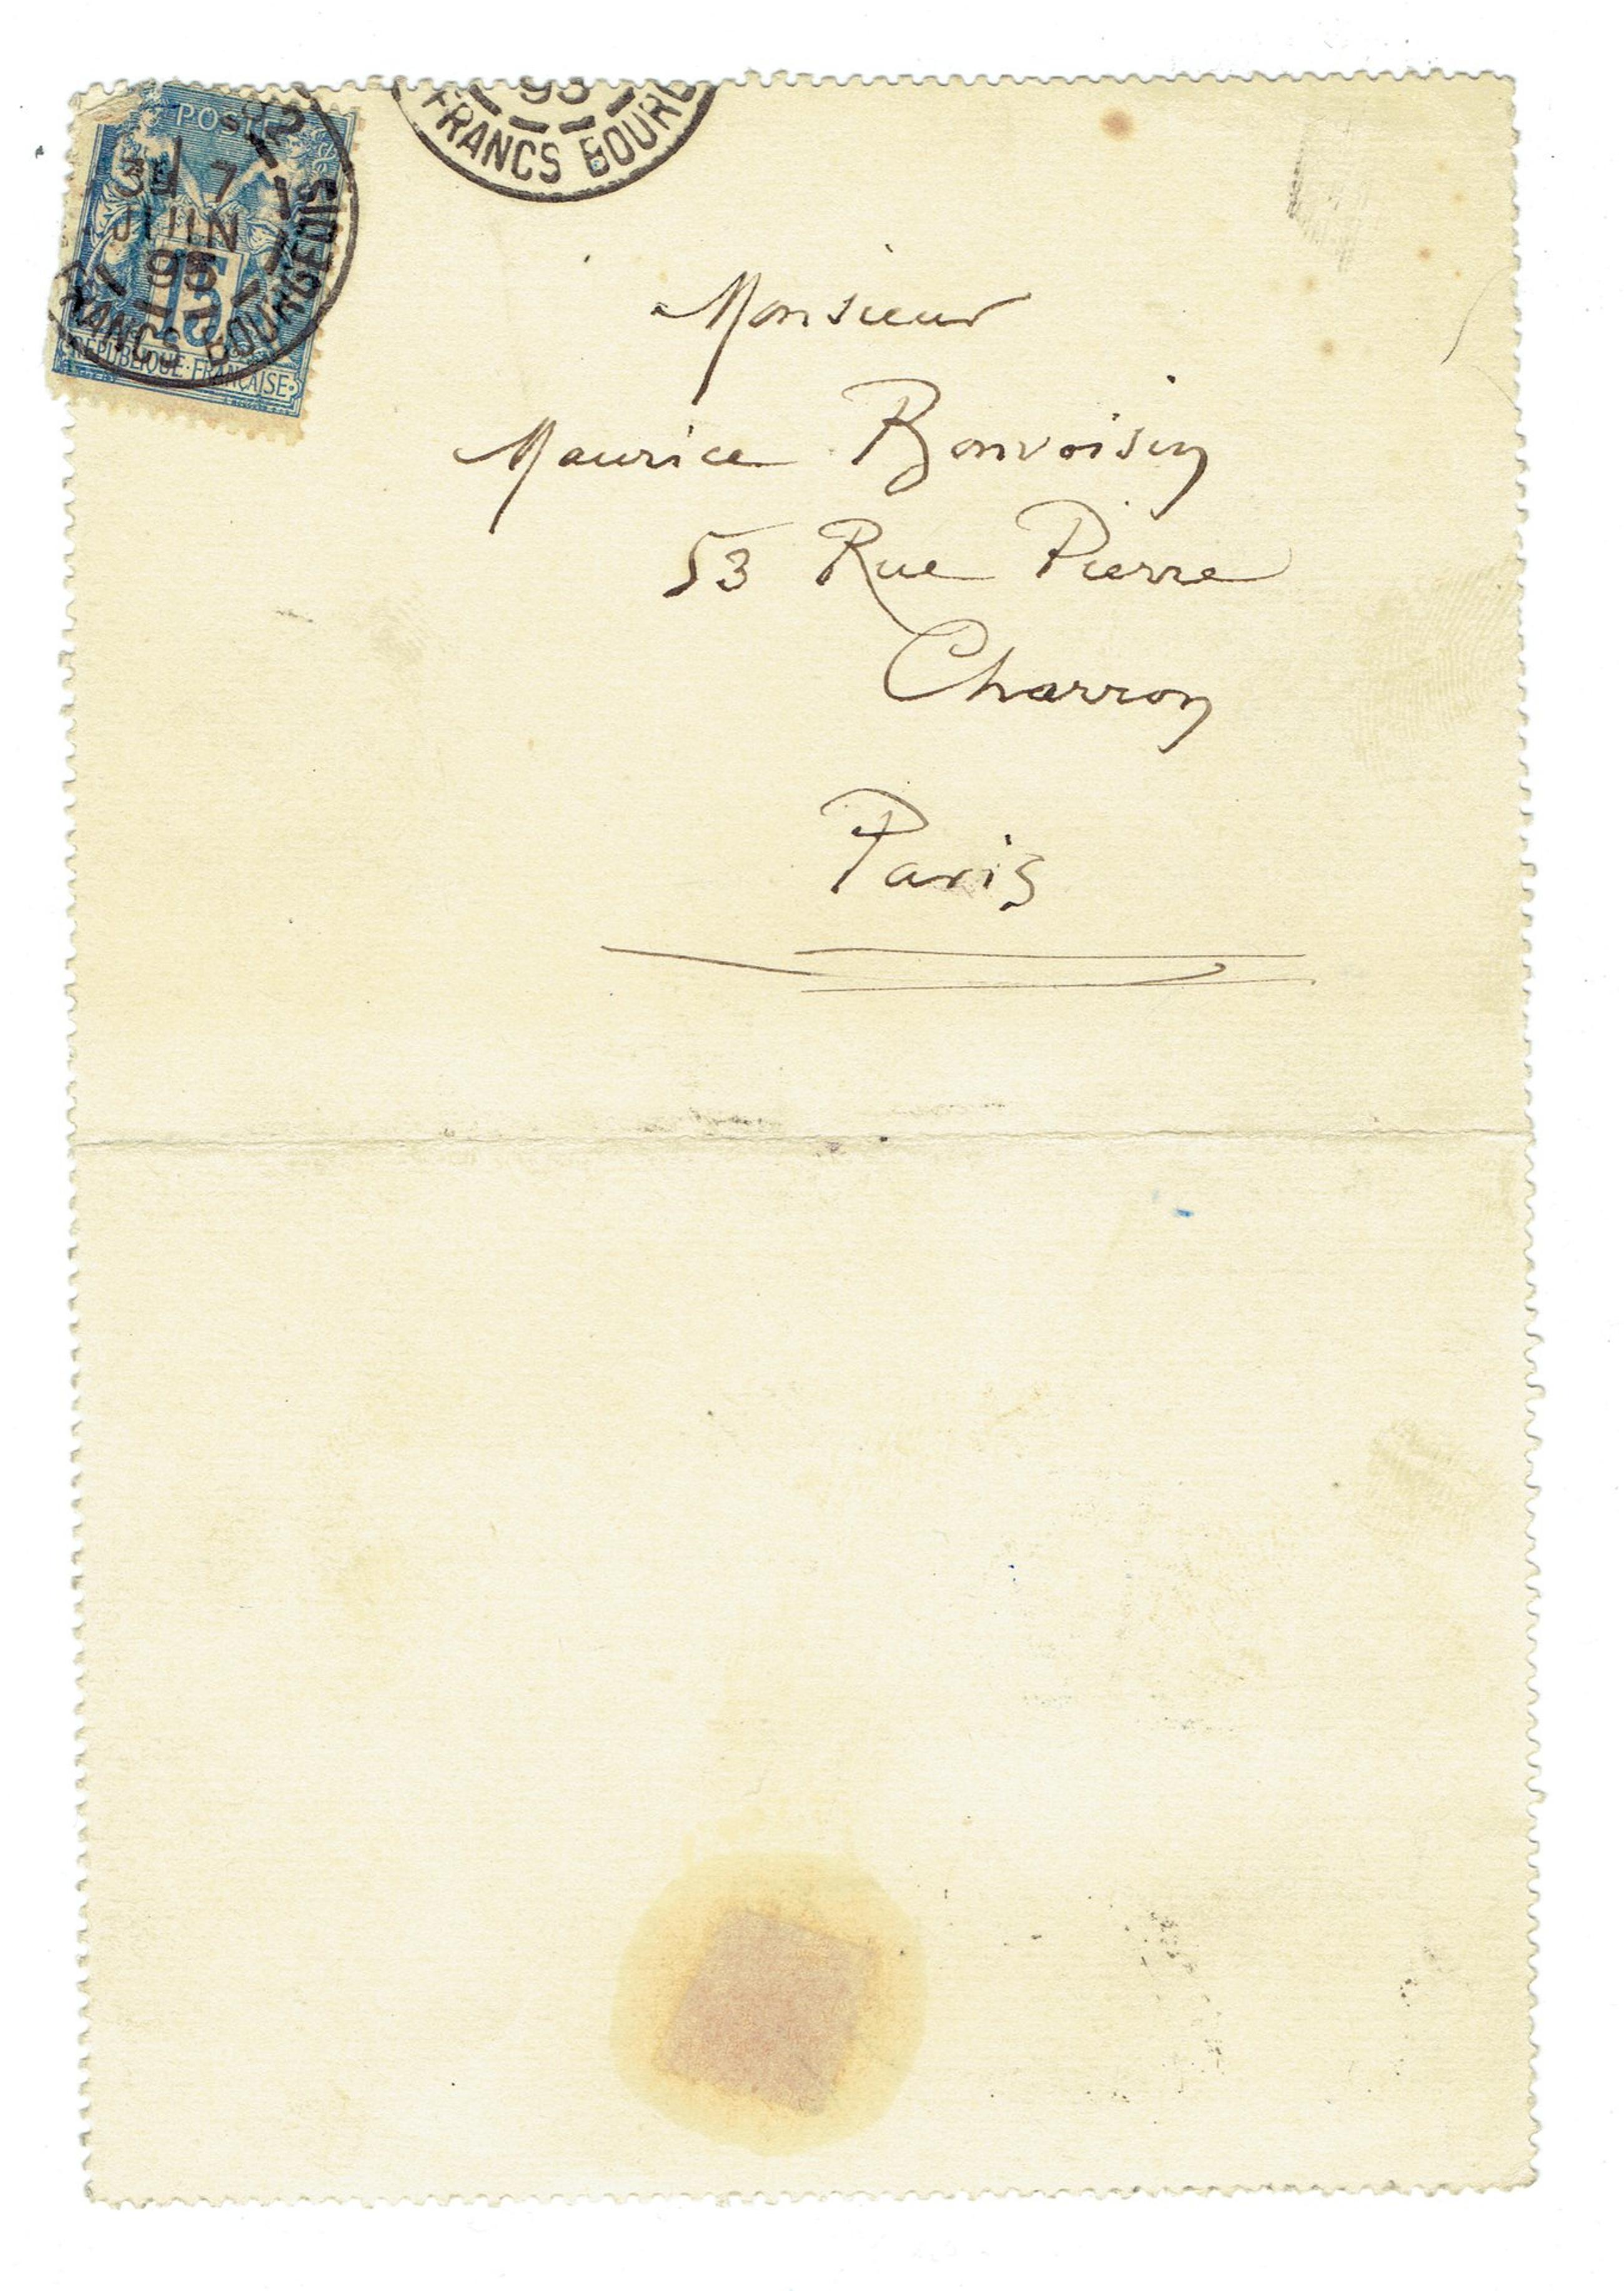 POS
3E 7
JUIN
93
FRANCS BOURGEOIS
15
RÉPUBLIQUE FRANÇAISE
93
FRANCS BOURG
Monsieur
Maurice Bonvoisin
53 Rue Pierre
Charron
Paris